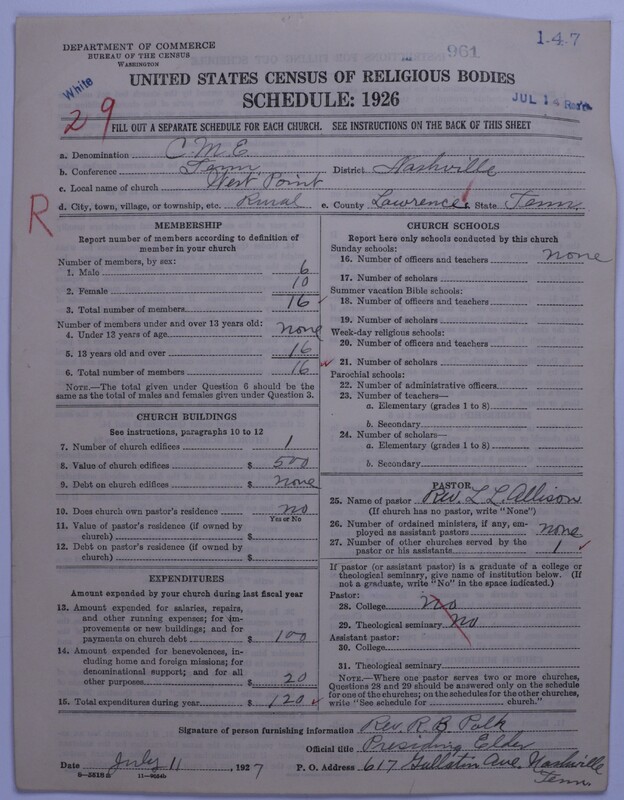 DEPARTMENT OF COMMERCE
BUREAU OF THE CENSUS
WASHINGTON
961
1-4-7
White
UNITED STATES CENSUS OF RELIGIOUS BODIES
SCHEDULE: 1926
JUL 14 Rec'd
29
FILL OUT A SEPARATE SCHEDULE FOR EACH CHURCH. SEE INSTRUCTIONS ON THE BACK OF THIS SHEET
a. Denomination C.M.E.
b. Conference Tenn. District Nashville
c. Local name of church West Point
d. City, town, village, or township, etc. Rural e. County Lawrence State Tenn.
R
MEMBERSHIP
Report number of members according to definition of member in your church
Number of members, by sex:
1. Male 6
2. Female 10
3. Total number of members 16
Number of members under and over 13 years old:
4. Under 13 years of age none
5. 13 years old and over 16
6. Total number of members 16
NOTE.—The total given under Question 6 should be the same as the total of males and females given under Question 3.
CHURCH BUILDINGS
See instructions, paragraphs 10 to 12
7. Number of church edifices 1
8. Value of church edifices $ 500
9. Debt on church edifices $ none
10. Does church own pastor's residence no
Yes or No
11. Value of pastor's residence (if owned by church) $
12. Debt on pastor's residence (if owned by church) $
EXPENDITURES
Amount expended by your church during last fiscal year
13. Amount expended for salaries, repairs, and other running expenses; for improvements or new buildings; and for payments on church debt $ 100
14. Amount expended for benevolences, including home and foreign missions; for denominational support; and for all other purposes $ 20
15. Total expenditures during year $ 120
CHURCH SCHOOLS
Report here only schools conducted by this church
Sunday schools:
16. Number of officers and teachers none
17. Number of scholars
Summer vacation Bible schools:
18. Number of officers and teachers
19. Number of scholars
Week-day religious schools:
20. Number of officers and teachers
21. Number of scholars
Parochial schools:
22. Number of administrative officers
23. Number of teachers—
a. Elementary (grades 1 to 8)
b. Secondary
24. Number of scholars—
a. Elementary (grades 1 to 8)
b. Secondary
PASTOR
25. Name of pastor Rev. L. L. Allison
(If church has no pastor, write "None")
26. Number of ordained ministers, if any, employed as assistant pastors none
27. Number of other churches served by the pastor or his assistants 1
If pastor (or assistant pastor) is a graduate of a college or theological seminary, give name of institution below. (If not a graduate, write "No" in the space indicated.)
Pastor:
28. College no
29. Theological seminary no
Assistant pastor:
30. College
31. Theological seminary
NOTE.—Where one pastor serves two or more churches, Questions 28 and 29 should be answered only on the schedule for one of the churches; on the schedules for the other churches, write "See schedule for church."
Signature of person furnishing information Rev. R. B. Polk
Official title Presiding Elder
Date July 11, 1927 P. O. Address 617 Gallatin Ave. Nashville
Tenn.